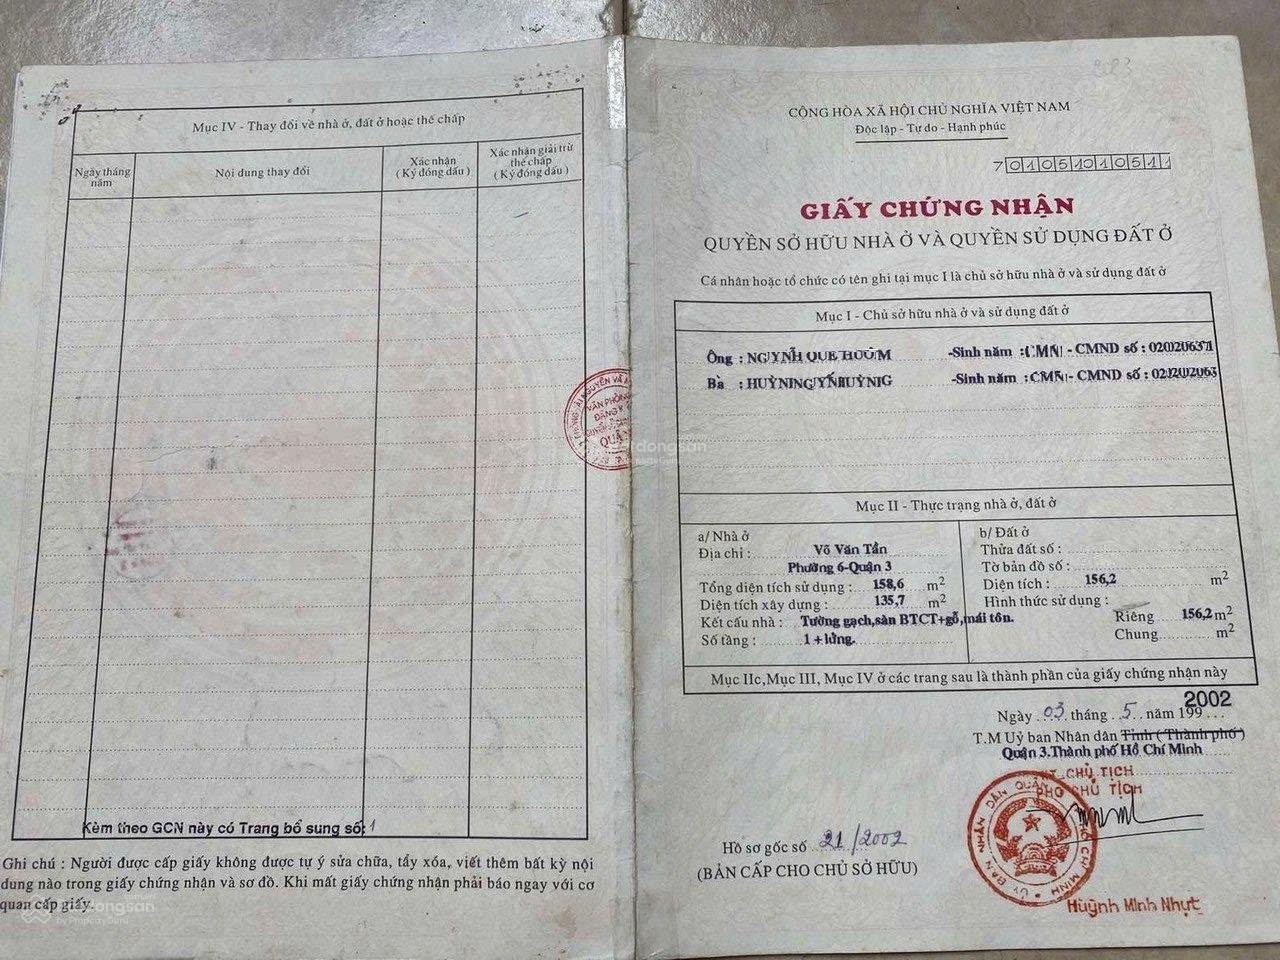 Mục IV - Thay đổi về nhà ở, đất ở hoặc thế chấp
Ngày tháng năm
Nội dung thay đổi
Xác nhận
( Ký đóng dấu )
Xác nhận giải trừ
thế chấp
( Ký đóng dấu )
Kèm theo GCN này có Trang bổ sung số: 1
Ghi chú : Người được cấp giấy không được tự ý sửa chữa, tẩy xóa, viết thêm bất kỳ nội
dung nào trong giấy chứng nhận và sơ đồ. Khi mất giấy chứng nhận phải báo ngay với cơ
quan cấp giấy.
CỘNG HÒA XÃ HỘI CHỦ NGHĨA VIỆT NAM
Độc lập - Tự do - Hạnh phúc
GIẤY CHỨNG NHẬN
QUYỀN SỞ HỮU NHÀ Ở VÀ QUYỀN SỬ DỤNG ĐẤT Ở
Cá nhân hoặc tổ chức có tên ghi tại mục I là chủ sở hữu nhà ở và sử dụng đất ở
Mục I - Chủ sở hữu nhà ở và sử dụng đất ở
Ông :
-Sinh năm : - CMND số :
Bà :
-Sinh năm : - CMND số :
Mục II - Thực trạng nhà ở, đất ở
a/ Nhà ở
Địa chỉ : Võ Văn Tần
Phường 6-Quận 3
Tổng diện tích sử dụng : 158,6 m2
Diện tích xây dựng : 135,7 m2
Kết cấu nhà : Tường gạch,sàn BTCT+gỗ,mái tôn.
Số tầng : 1 + lửng.
b/ Đất ở
Thửa đất số :
Tờ bản đồ số :
Diện tích : 156,2 m2
Hình thức sử dụng :
Riêng 156,2 m2
Chung m2
Mục IIc,Mục III, Mục IV ở các trang sau là thành phần của giấy chứng nhận này
Ngày 03 tháng 5 năm 199 2002
T.M Uỷ ban Nhân dân Tỉnh ( Thành phố )
Quận 3.Thành phố Hồ Chí Minh
CHỦ TỊCH
PHÓ CHỦ TỊCH
Hồ sơ gốc số 21/2002
(BẢN CẤP CHO CHỦ SỞ HỮU)
Huỳnh Minh Nhựt